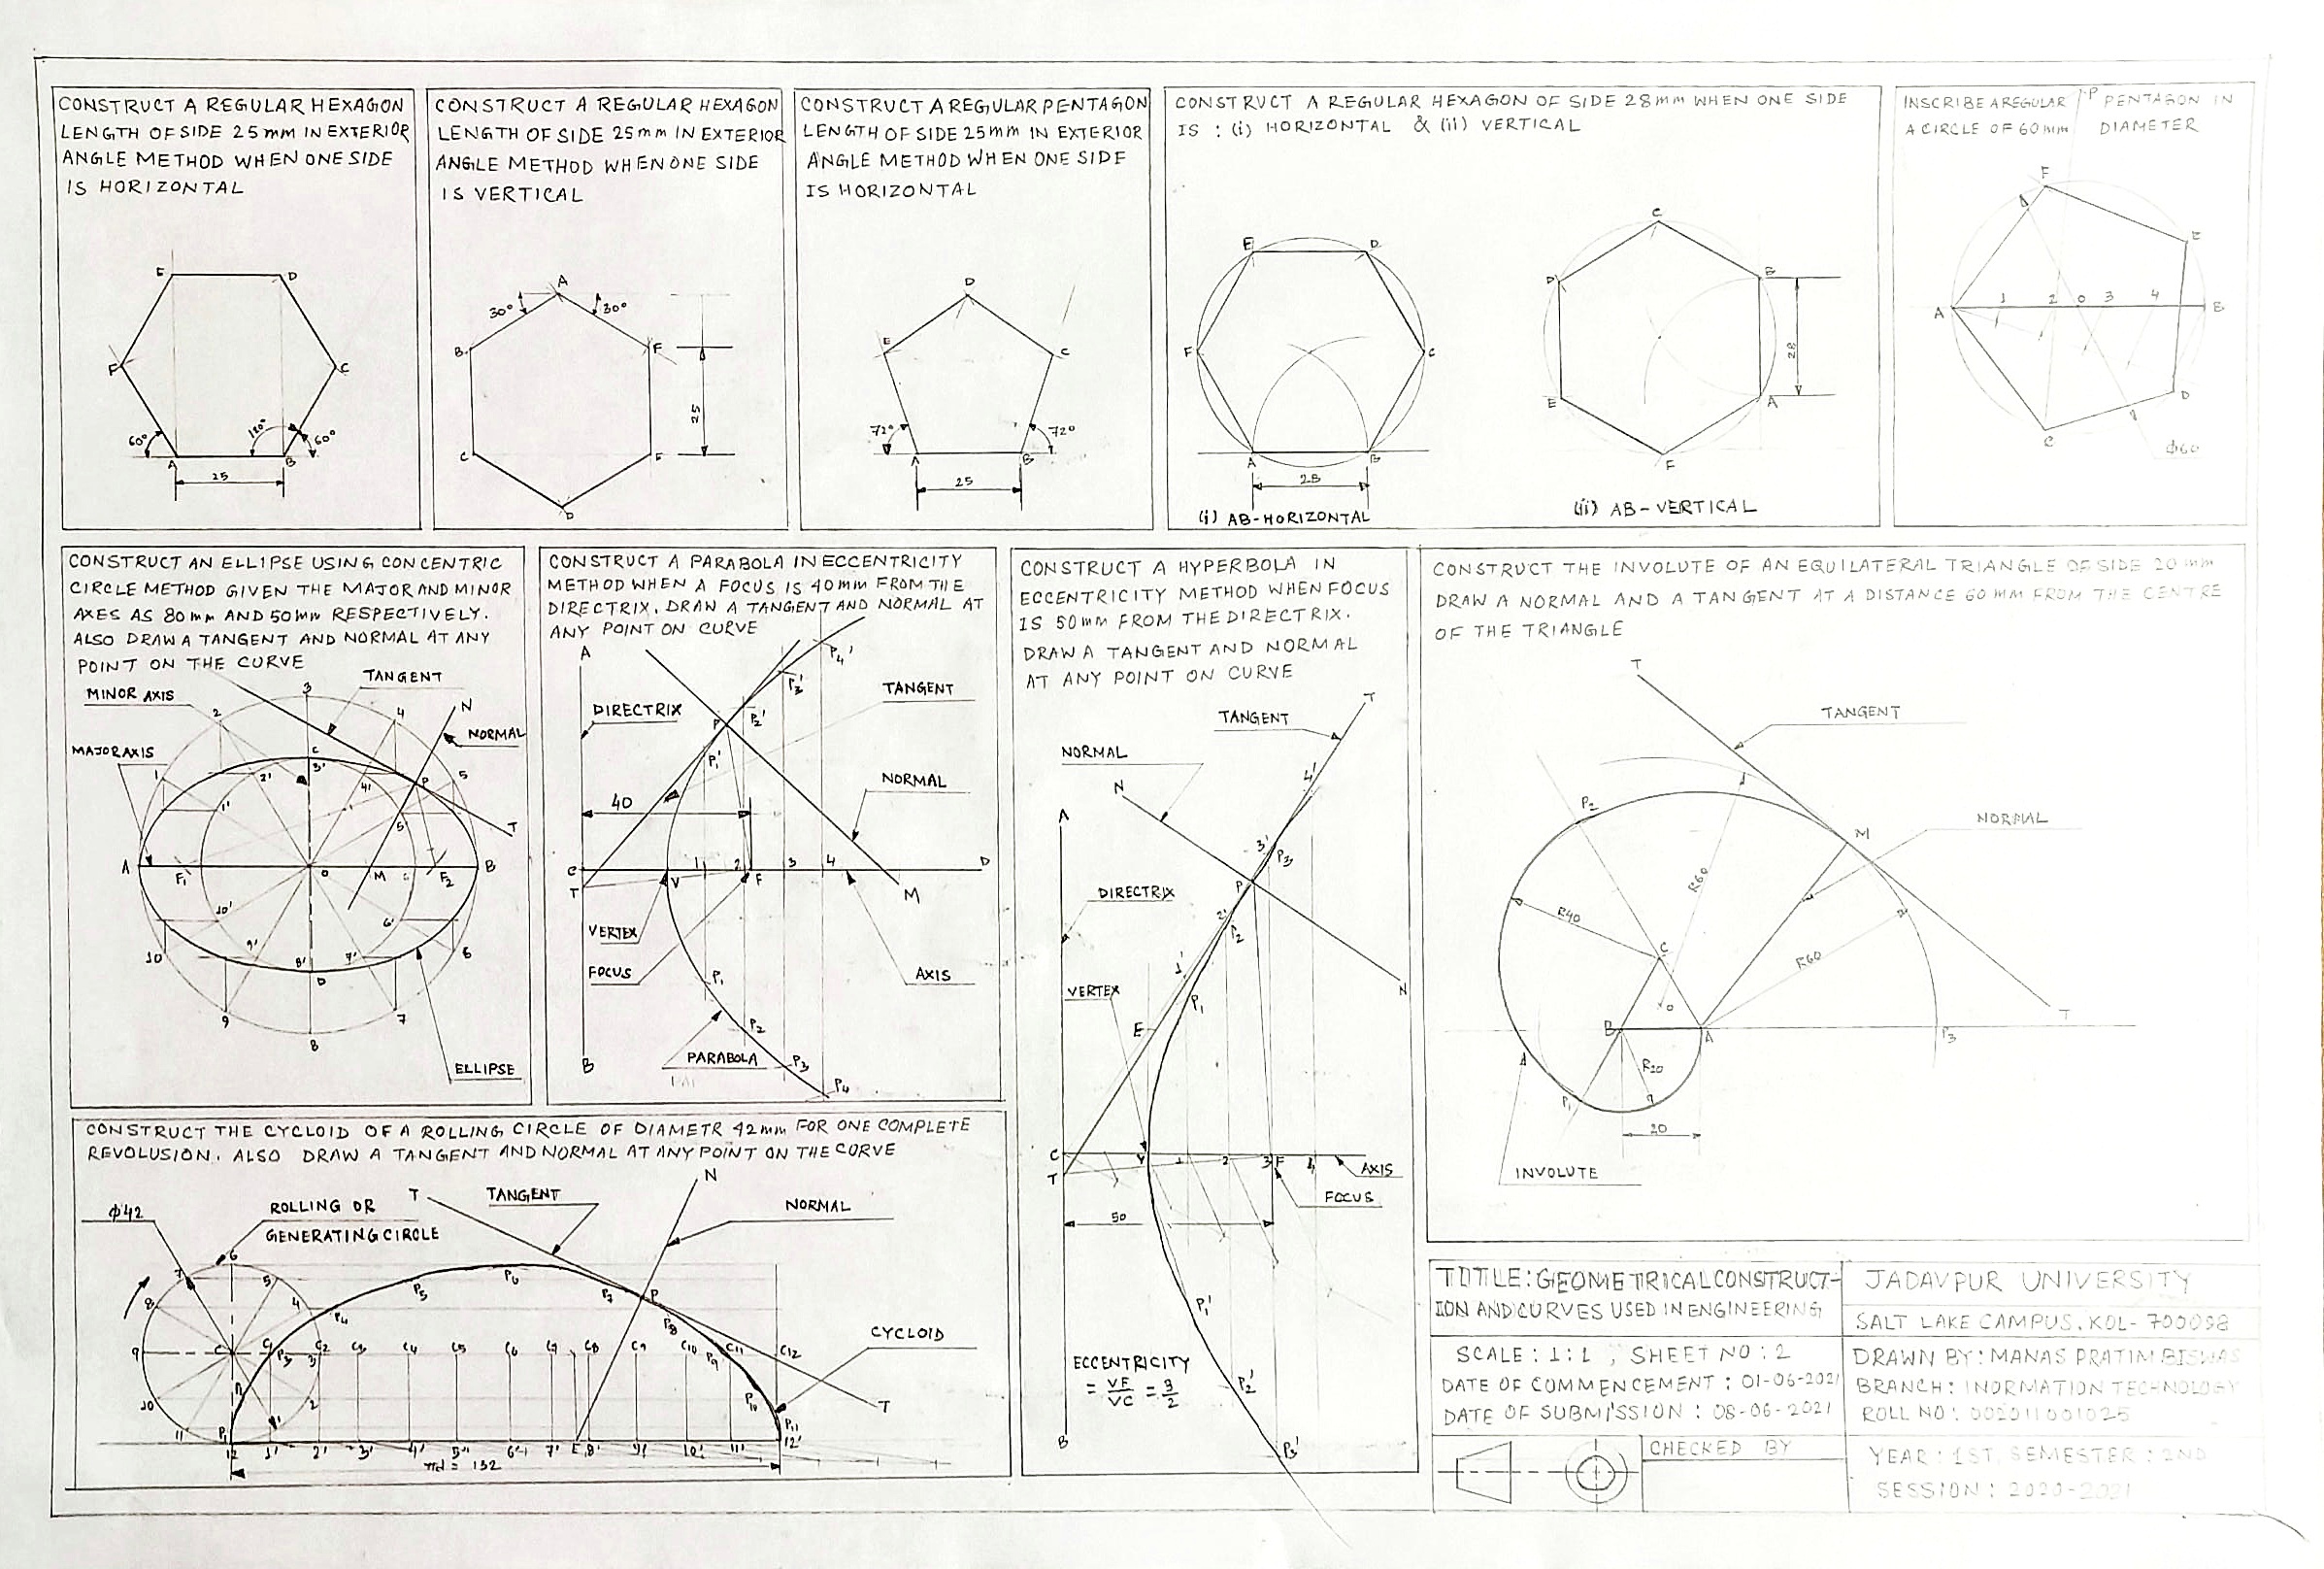 CONSTRUCT A REGULAR HEXAGON
LENGTH OF SIDE 25mm IN EXTERIOR
ANGLE METHOD WHEN ONE SIDE
IS HORIZONTAL
E
D
F
C
60°
120°
60°
A
B
25
CONSTRUCT A REGULAR HEXAGON
LENGTH OF SIDE 25mm IN EXTERIOR
ANGLE METHOD WHEN ONE SIDE
IS VERTICAL
A
30°
30°
B
F
25
C
E
D
CONSTRUCT A REGULAR PENTAGON
LENGTH OF SIDE 25mm IN EXTERIOR
ANGLE METHOD WHEN ONE SIDE
IS HORIZONTAL
D
E
C
72°
72°
A
B
25
CONSTRUCT A REGULAR HEXAGON OF SIDE 28mm WHEN ONE SIDE
IS : (i) HORIZONTAL & (ii) VERTICAL
E
D
F
C
A
B
28
(i) AB-HORIZONTAL
C
D
B
28
E
A
F
(ii) AB-VERTICAL
INSCRIBE A REGULAR P PENTAGON IN
A CIRCLE OF 60mm DIAMETER
F
E
A 1 2 O 3 4 B
D
C
Φ60
CONSTRUCT AN ELLIPSE USING CONCENTRIC
CIRCLE METHOD GIVEN THE MAJOR AND MINOR
AXES AS 80mm AND 50mm RESPECTIVELY.
ALSO DRAW A TANGENT AND NORMAL AT ANY
POINT ON THE CURVE
TANGENT
MINOR AXIS
3
N
2
4
NORMAL
MAJOR AXIS
C
3'
1
2'
4'
P
5
1'
5'
T
A F1 O M F2 B
10'
6'
10
9'
8'
7'
6
D
9
7
8
ELLIPSE
CONSTRUCT A PARABOLA IN ECCENTRICITY
METHOD WHEN A FOCUS IS 40mm FROM THE
DIRECTRIX. DRAW A TANGENT AND NORMAL AT
ANY POINT ON CURVE
A
P4'
P3'
TANGENT
DIRECTRIX
P
P2'
P1'
NORMAL
40
C 1 2 3 4 D
T
V
F
M
VERTEX
FOCUS
P1
AXIS
P2
PARABOLA
B
P3
P4
CONSTRUCT A HYPERBOLA IN
ECCENTRICITY METHOD WHEN FOCUS
IS 50mm FROM THE DIRECTRIX.
DRAW A TANGENT AND NORMAL
AT ANY POINT ON CURVE
T
TANGENT
NORMAL
4'
N
A
3'
P3
P
DIRECTRIX
2'
P2
1'
VERTEX
P1
N
E
C V 1 2 3 F 4 AXIS
T
FOCUS
50
P1'
ECCENTRICITY
= VF/VC = 3/2
P2'
B
P3'
CONSTRUCT THE INVOLUTE OF AN EQUILATERAL TRIANGLE OF SIDE 20 mm
DRAW A NORMAL AND A TANGENT AT A DISTANCE 60 MM FROM THE CENTRE
OF THE TRIANGLE
T
TANGENT
P2
NORMAL
M
R60
R40
C
R60
O
T
B
A
P3
R20
P1
20
INVOLUTE
CONSTRUCT THE CYCLOID OF A ROLLING CIRCLE OF DIAMETR 42mm FOR ONE COMPLETE
REVOLUSION. ALSO DRAW A TANGENT AND NORMAL AT ANY POINT ON THE CURVE
N
T
TANGENT
Φ42
ROLLING OR
GENERATING CIRCLE
NORMAL
6
7
5
P6
P5
P7
P
8
4
P4
P8
CYCLOID
9 C C1 P3 3 C2 C3 C4 C5 C6 C7 C8 C9 C10 P9 C11 C12
10
2
P10
11
1
P1
P11
12 1' 2' 3' 4' 5' 6' 7' E 8' 9' 10' 11' 12'
πd = 132
T
TITLE: GEOMETRICAL CONSTRUCT-
ION AND CURVES USED IN ENGINEERING
SCALE : 1:1 , SHEET NO : 2
DATE OF COMMENCEMENT : 01-06-2021
DATE OF SUBMISSION : 08-06-2021
CHECKED BY
JADAVPUR UNIVERSITY
SALT LAKE CAMPUS. KOL- 700098
DRAWN BY : MANAS PRATIM BISWAS
BRANCH : INORMATION TECHNOLOGY
ROLL NO : 002011001025
YEAR : 1ST, SEMESTER : 2ND
SESSION : 2020-2021